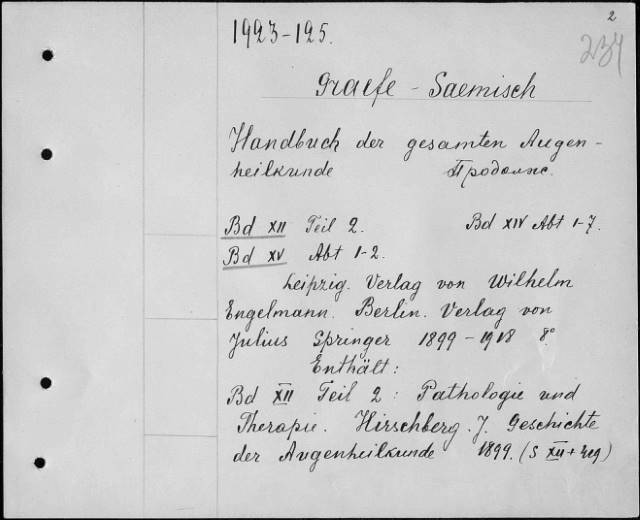 2
234
1923-125.
Graefe - Saemisch
Handbuch der gesamten Augen-
heilkunde Продолж.
Bd XII Teil 2. Bd XIV Abt 1-7.
Bd XV Abt 1-2.
Leipzig. Verlag von Wilhelm
Engelmann. Berlin. Verlag von
Julius Springer 1899-1918 8°
Enthält:
Bd XII Teil 2: Pathologie und
Therapie. Hirschberg. J. Geschichte
der Augenheilkunde 1899. (S XII+419)